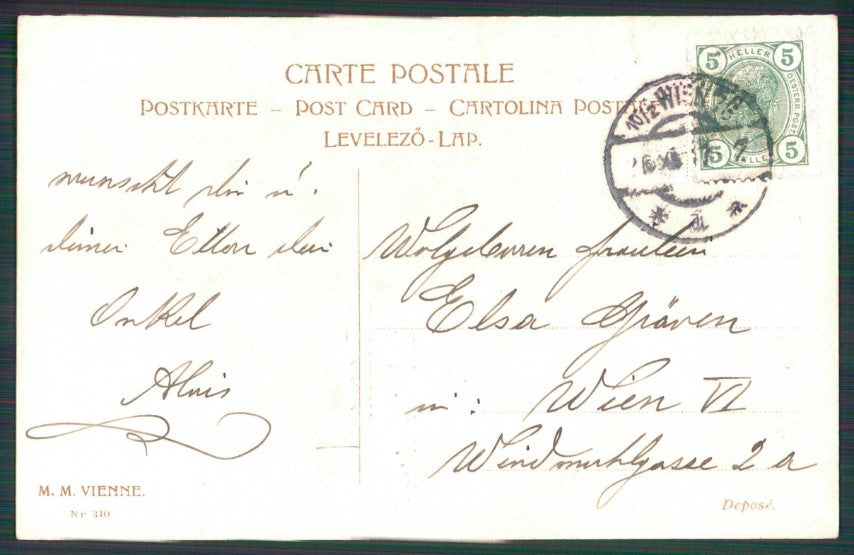 CARTE POSTALE
POSTKARTE – POST CARD – CARTOLINA POSTALE
LEVELEZŐ-LAP.
5 HELLER 5
OESTERR. POST
5 HELLER 5
10/2 WIEN
wunscht dir u.
deiner Eltern dein
Onkel
Alois
Wolgeboren Fräulein
Elsa Gräven
in: Wien VI
Windmuhlgasse 2 a
M. M. VIENNE.
Nr. 310.
Deposé.